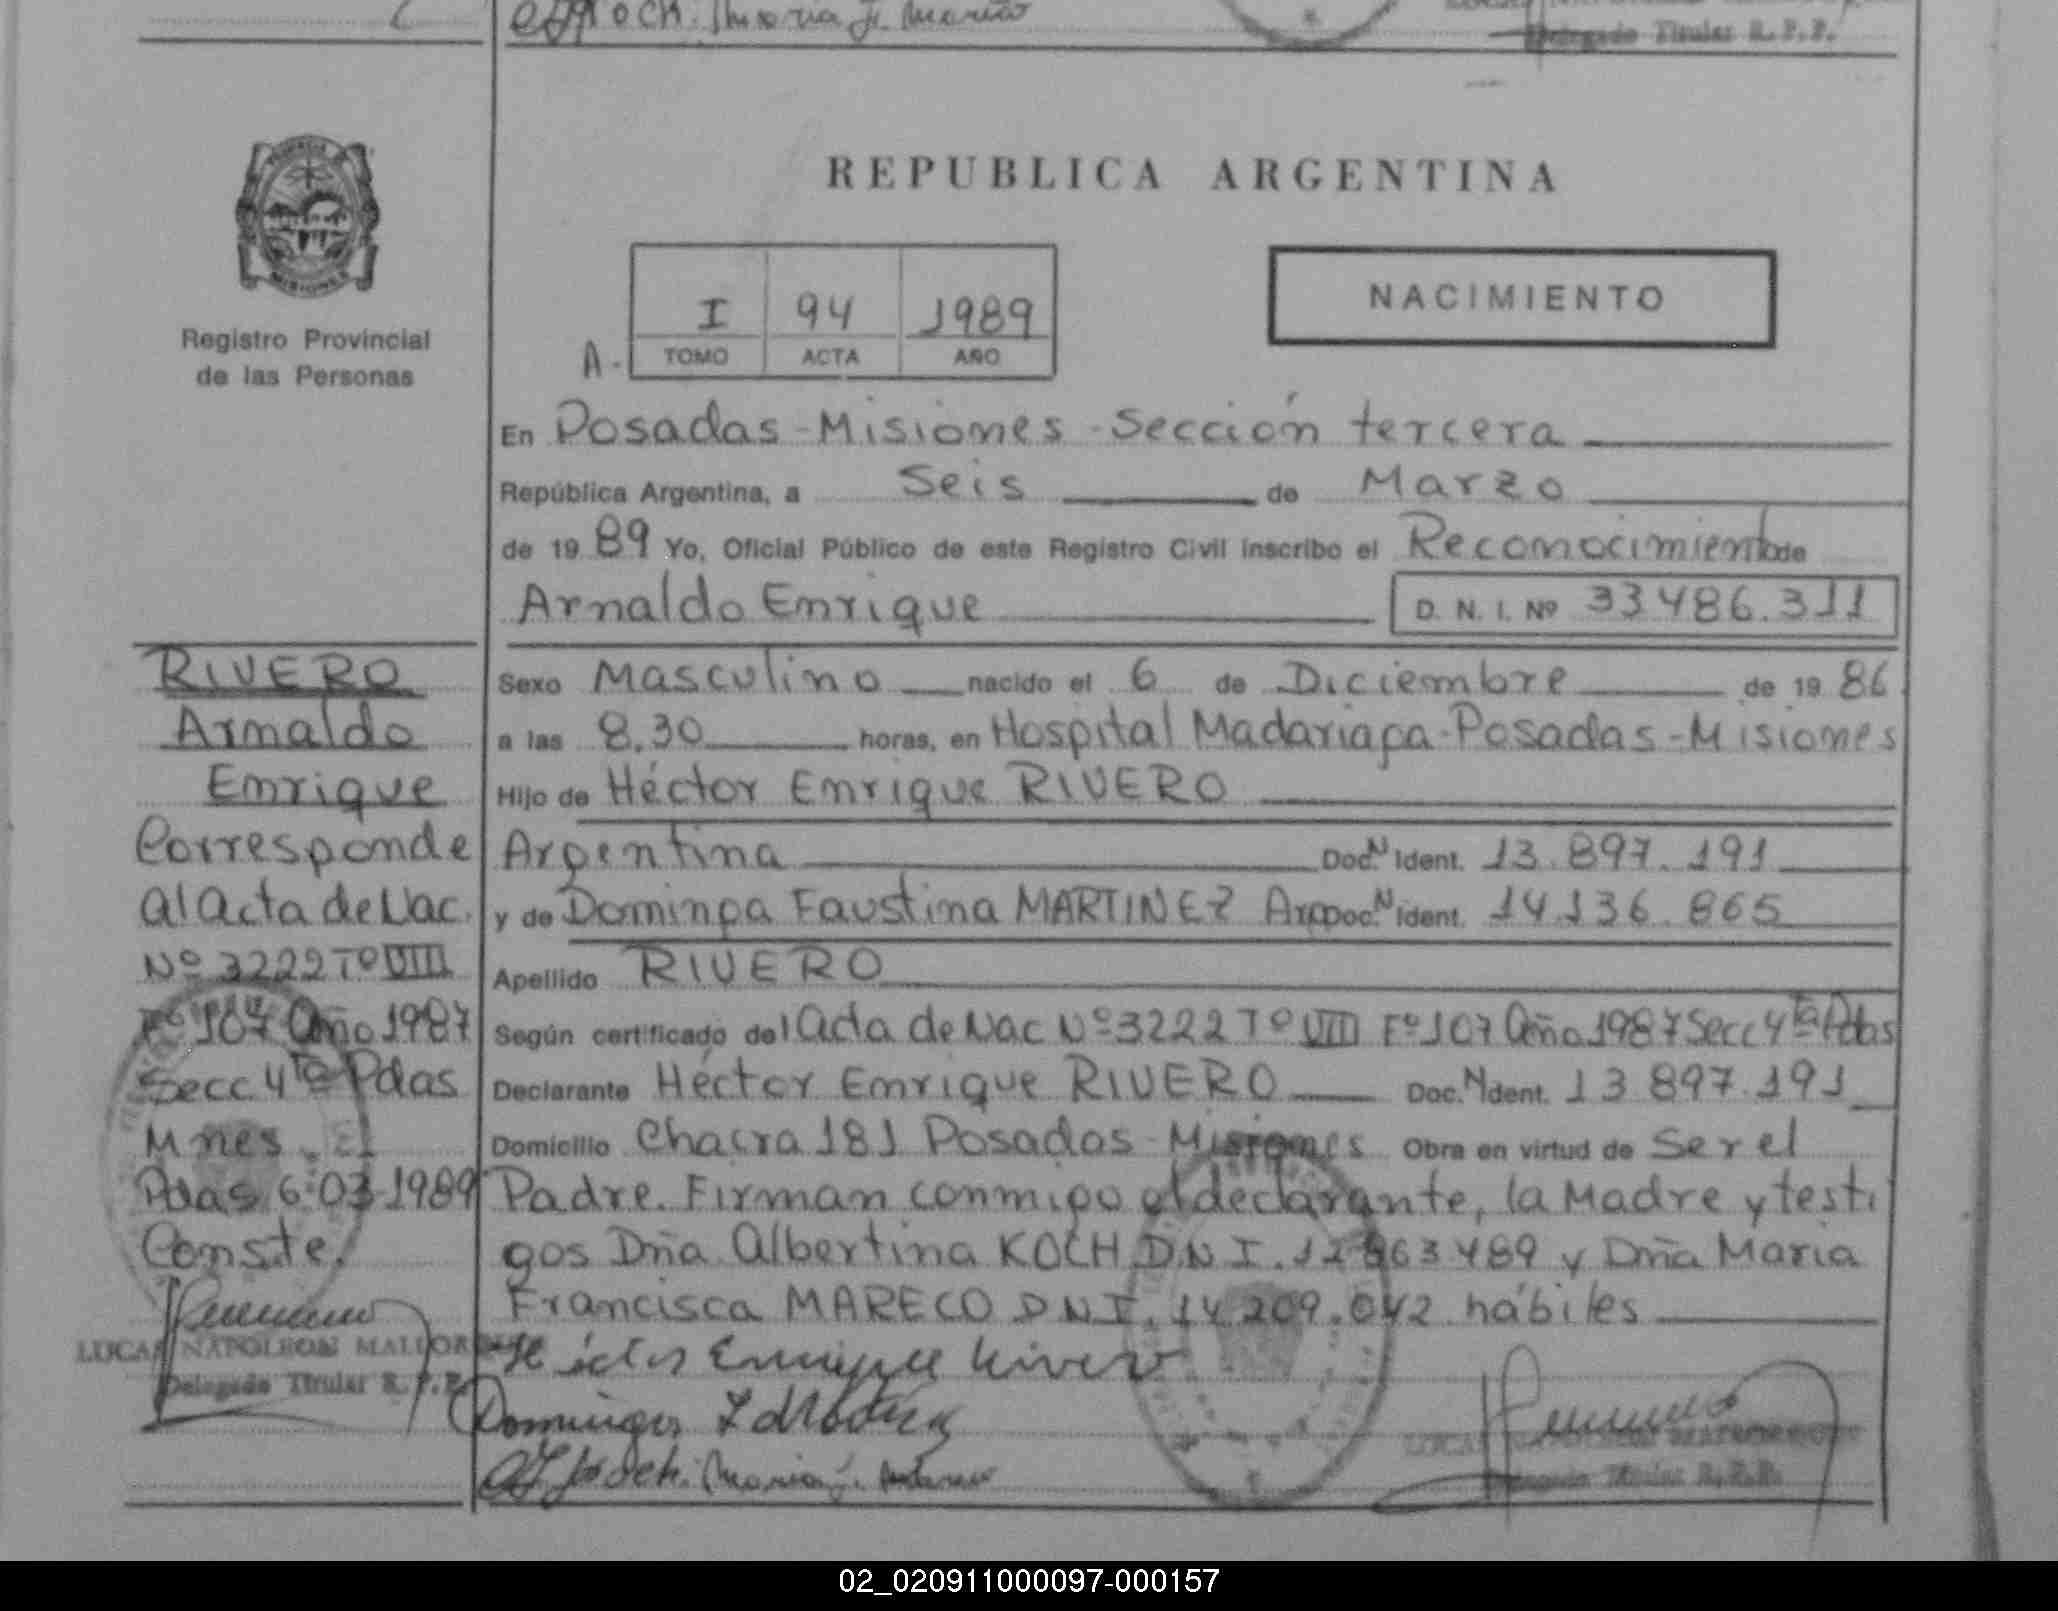 REPUBLICA ARGENTINA
MISIONES
Registro Provincial
de las Personas
I 94 1989
A- TOMO ACTA AÑO
NACIMIENTO
En Posadas-Misiones-Sección tercera
República Argentina, a Seis de Marzo
de 19 89 Yo, Oficial Público de este Registro Civil inscribo el Reconocimiento de
Arnaldo Enrique D. N. I. Nº 33486.311
Sexo Masculino nacido el 6 de Diciembre de 19 86
a las 8,30 horas, en Hospital Madariaga-Posadas-Misiones
Hijo de Héctor Enrique RIVERO
Argentina Doc.N Ident. 13.897.191
y de Dominga Faustina MARTINEZ Arg Doc.N Ident. 14136.865
Apellido RIVERO
Según certificado del Acta de Nac Nº3222 Tº VIII Fº107 Año 1987 Secc 4ta Pdas
Declarante Héctor Enrique RIVERO Doc.N Ident. 13 897.191
Domicilio Chacra 181 Posadas-Misiones Obra en virtud de Ser el
Padre. Firman conmigo el declarante, la Madre y testi
gos Dña Albertina KOCH D.N.I. 489 y Dña Maria
Francisca MARECO D.N.I. 14 209.042 hábiles
Héctor Enrique Rivero
RIVERO
Arnaldo
Enrique
Corresponde
al acta de Nac.
Nº 3222 Tº VIII
Fº 107 Año 1987
Secc 4ta Pdas
Mnes.
Pdas 6-03-1989
Conste.
LUCAS NAPOLEON
Delegado Titular R.P.P.
LUCAS NAPOLEON
Delegado Titular R.P.P.
Delegado Titular R.P.P.
02_020911000097-000157